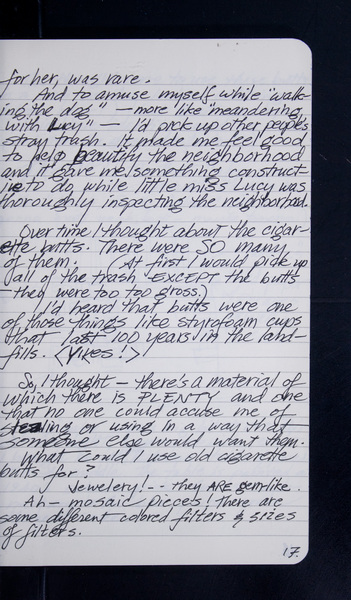 for her, was rare.
And to amuse myself while "walk-
ing the dog" — more like "meandering
with Lucy" — I'd pick up other people's
stray trash. It made me feel good
to help beautify the neighborhood
and it gave me something construct-
ive to do while little miss Lucy was
thoroughly inspecting the neighborhood.
Over time I thought about the cigar-
ette butts. There were SO many
of them. (At first I would pick up
all of the trash EXCEPT the butts
— they were too too gross.)
I'd heard that butts were one
of those things like styrofoam cups
that last 100 years in the land-
fills. (YIKES!)
So, I thought — there's a material of
which there is PLENTY and one
that no one could accuse me of
stealing or using in a way that
someone else would want them.
What could I use old cigarette
butts for?
Jewelery! -- they ARE gem-like.
Ah — mosaic pieces! There are
some different colored filters & sizes
of filters.
17.